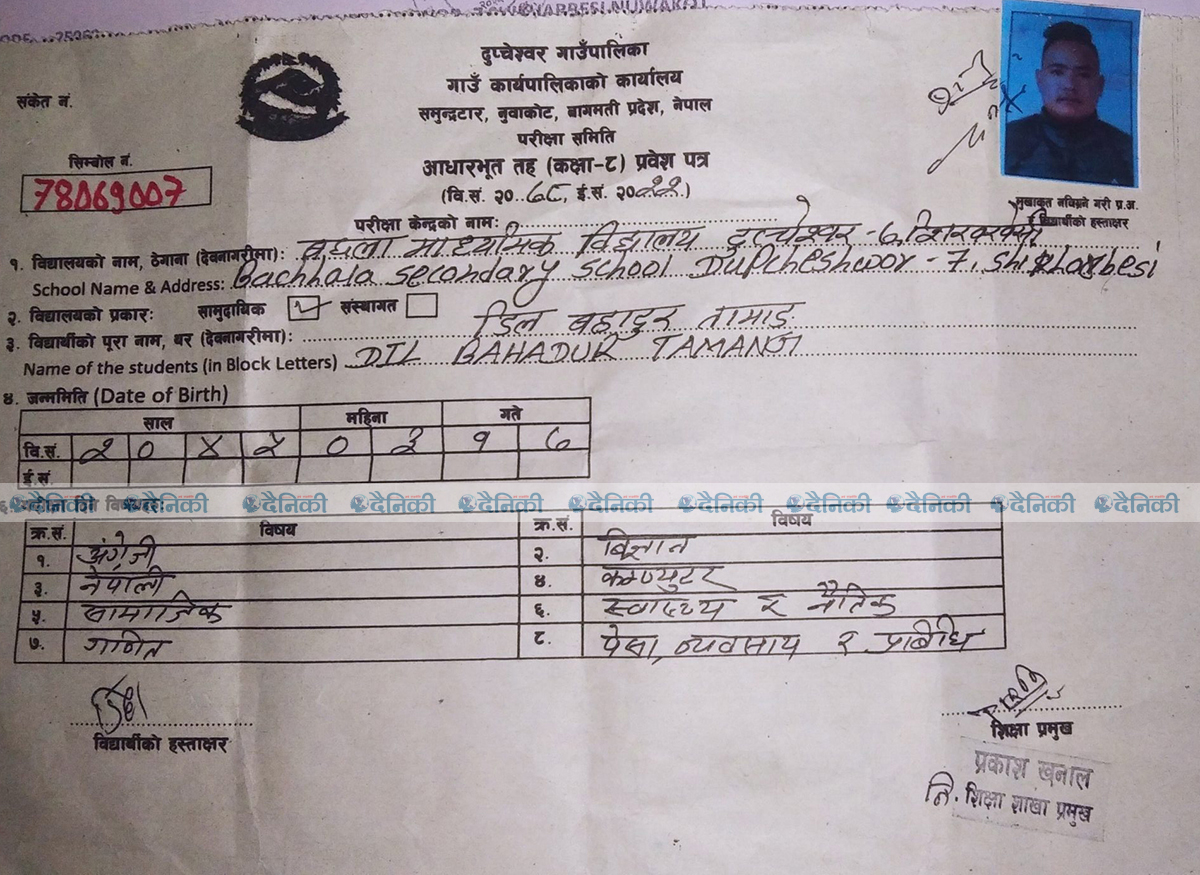 दुप्चेश्वर गाउँपालिका
गाउँ कार्यपालिकाको कार्यालय
समुन्द्रटार, नुवाकोट, बागमती प्रदेश, नेपाल
परीक्षा समिति
आधारभूत तह (कक्षा-८) प्रवेश पत्र
(वि.सं. २०७८, ई.सं. २०२२)
संकेत नं.
सिम्बोल नं.
78069007
विद्यार्थीको हस्ताक्षर
परीक्षा केन्द्रको नामः
१. विद्यालयको नाम, ठेगाना (देवनागरीमा): बछला माध्यमिक विद्यालय दुप्चेश्वर-७
School Name & Address: Bachhala secondary school Dupcheshwor-7,
२. विद्यालयको प्रकारः सामुदायिक संस्थागत
३. विद्यार्थीको पूरा नाम, थर (देवनागरीमा): डिल बहादुर तामाङ
Name of the students (in Block Letters) DIL BAHADUR TAMANG
४. जन्ममिति (Date of Birth)
साल महिना गते
वि.सं. २ ० ४ २ ० ३ १ ७
ई.सं
दैनिकी दैनिकी दैनिकी दैनिकी दैनिकी दैनिकी दैनिकी दैनिकी दैनिकी दैनिकी
क्र.सं. विषय क्र.सं. विषय
१. अंग्रेजी २. विज्ञान
३. नेपाली ४. कम्प्युटर
५. सामाजिक ६. स्वास्थ्य र नैतिक
७. गणित ८. पेसा, व्यवसाय र प्रबिधि
विद्यार्थीको हस्ताक्षर
शिक्षा प्रमुख
प्रकाश खनाल
नि. शिक्षा शाखा प्रमुख